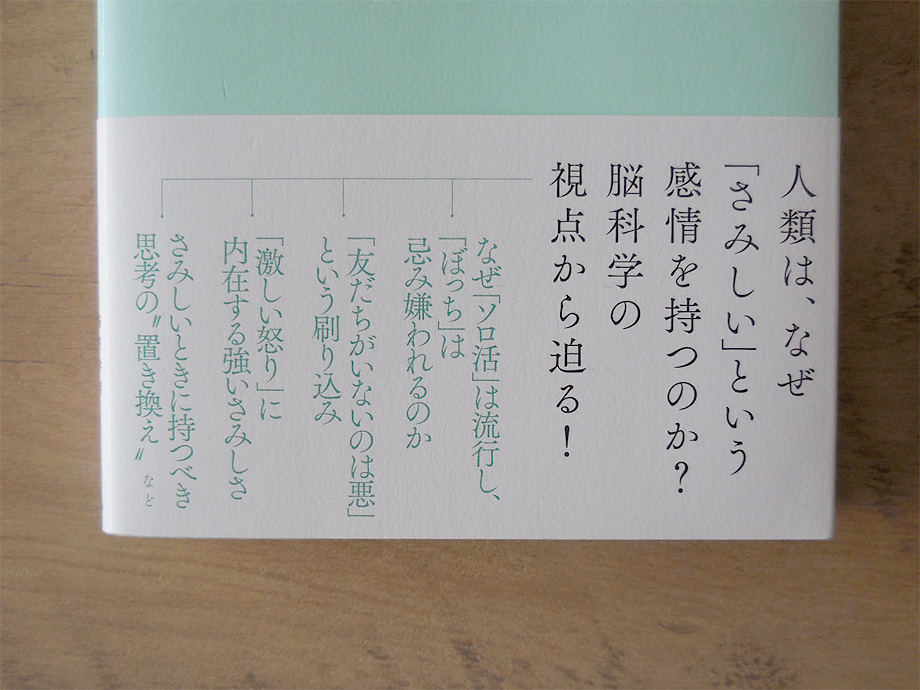 人類は、なぜ
「さみしい」という
感情を持つのか?
脳科学の
視点から迫る!
なぜ「ソロ活」は流行し、
「ぼっち」は
忌み嫌われるのか
「友だちがいないのは悪」
という刷り込み
「激しい怒り」に
内在する強いさみしさ
さみしいときに持つべき
思考の〝置き換え〟
など